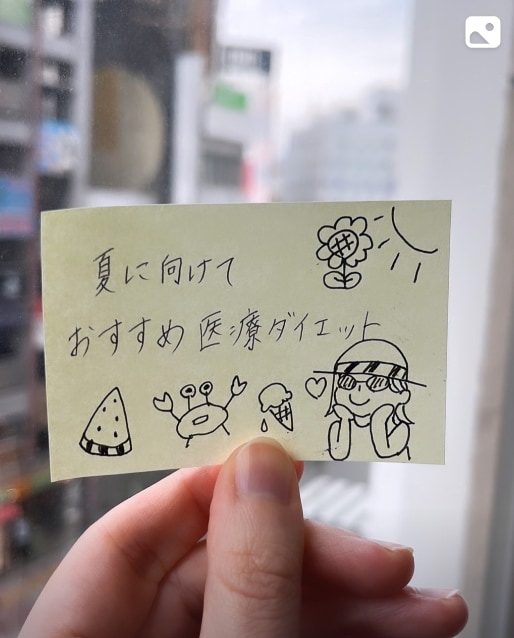 夏に向けて
おすすめ医療ダイエット